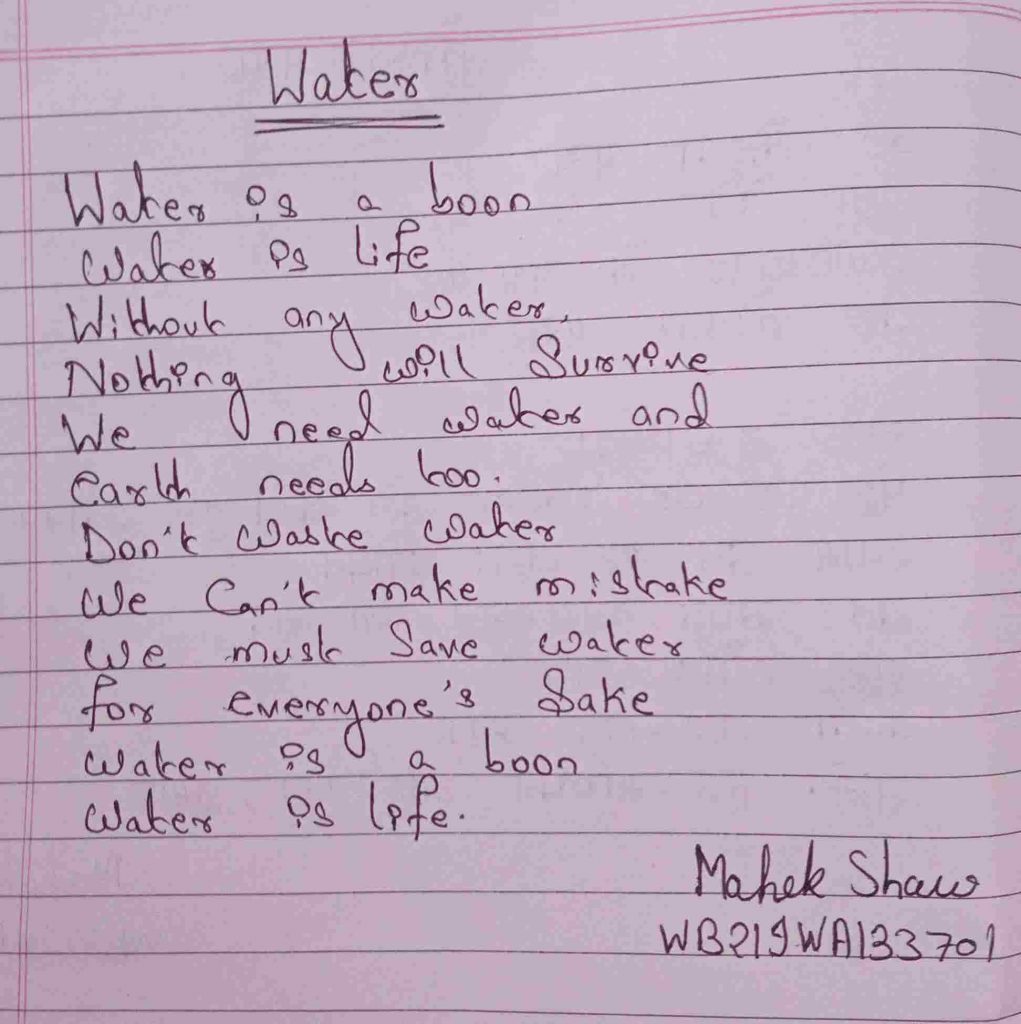 Water
Water is a boon
Water is life
Without any water,
Nothing will Survive
We need water and
Earth needs too.
Don't Waste Water
We Can't make mistake
We must Save water
for everyone's Sake
water is a boon
Water is life.
Mahek Shaw
WB21SWA133701